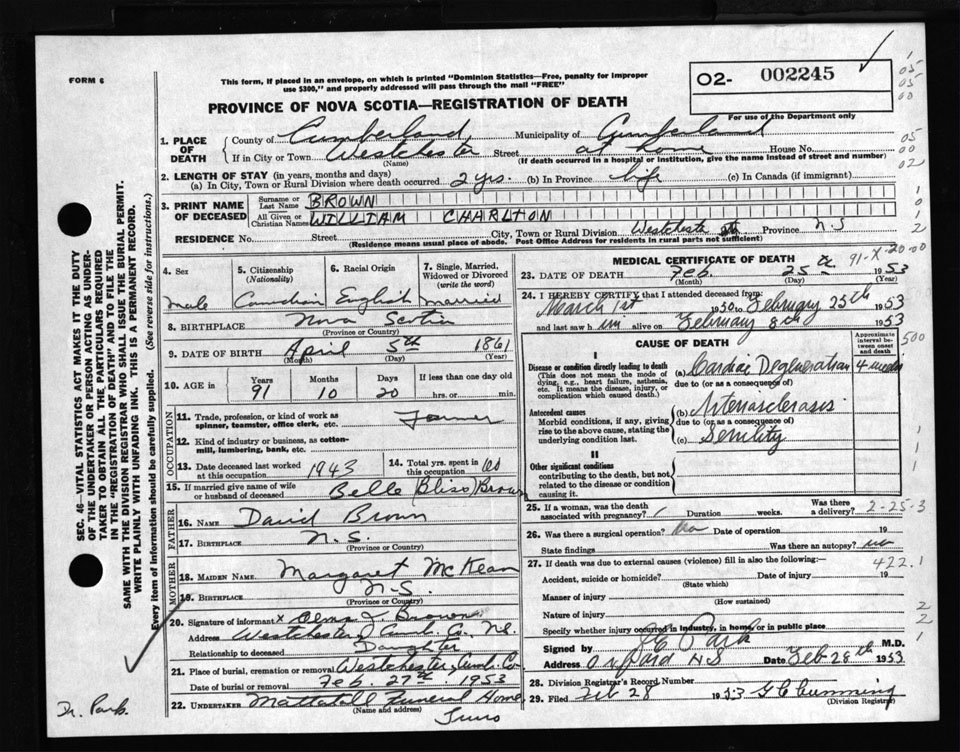 FORM 6
This form, if placed in an envelope, on which is printed "Dominion Statistics—Free, penalty for improper
use $300," and properly addressed will pass through the mail "FREE"
O2- 002245
For use of the Department only
PROVINCE OF NOVA SCOTIA—REGISTRATION OF DEATH
1. PLACE OF DEATH County of Cumberland Municipality of Cumberland
If in City or Town Westchester Street at home House No.
(Name) (If death occurred in a hospital or institution, give the name instead of street and number)
2. LENGTH OF STAY (in years, months and days)
(a) In City, Town or Rural Division where death occurred 2 yrs. (b) In Province life (c) In Canada (if immigrant)
3. PRINT NAME OF DECEASED Surname or Last Name BROWN
All Given or Christian Names WILLIAM CHARLTON
RESIDENCE No. Street City, Town or Rural Division Westchester Province N.S
(Residence means usual place of abode. Post Office Address for residents in rural parts not sufficient)
4. Sex Male
5. Citizenship (Nationality) Canadian
6. Racial Origin English
7. Single, Married, Widowed or Divorced (write the word) Married
8. BIRTHPLACE Nova Scotia
(Province or Country)
9. DATE OF BIRTH April 5th 1861
(Month) (Day) (Year)
10. AGE in Years 91 Months 10 Days 20 If less than one day old hrs. or min.
OCCUPATION
11. Trade, profession, or kind of work as spinner, teamster, office clerk, etc. Farmer
12. Kind of industry or business, as cotton-mill, lumbering, bank, etc.
13. Date deceased last worked at this occupation 1943
14. Total yrs. spent in this occupation 60
15. If married give name of wife or husband of deceased Belle (Bliss) Brown
FATHER
16. NAME David Brown
17. BIRTHPLACE N.S.
(Province or Country)
MOTHER
18. MAIDEN NAME Margaret McKean
19. BIRTHPLACE N.S.
(Province or Country)
20. Signature of informant x Brown
Address Westchester, Cumb. Co., N.S.
Relationship to deceased Daughter
21. Place of burial, cremation or removal Westchester, Cumb. Co
Date of burial or removal Feb. 27th. 1953
22. UNDERTAKER Mattatall Funeral Home
(Name and address) Truro
MEDICAL CERTIFICATE OF DEATH
91-X-20-00
23. DATE OF DEATH Feb. 25 1953
(Month) (Day) (Year)
24. I HEREBY CERTIFY that I attended deceased from:
March 1st 1950 to February 25th 1953
and last saw h im alive on February 8th 1953
CAUSE OF DEATH
Approximate interval between onset and death
I
Disease or condition directly leading to death
(This does not mean the mode of dying, e.g., heart failure, asthenia, etc. It means the disease, injury, or complication which caused death.
(a) Cardiac Degeneration
due to (or as a consequence of)
Antecedent causes
Morbid conditions, if any, giving rise to the above cause, stating the underlying condition last.
(b) Arteriosclerosis
due to (or as a consequence of)
(c) Senility
II
Other significant conditions
contributing to the death, but not related to the disease or condition causing it.
25. If a woman, was the death associated with pregnancy? Duration weeks. Was there a delivery?
2-25-3
26. Was there a surgical operation? No Date of operation 19
State findings Was there an autopsy? no
27. If death was due to external causes (violence) fill in also the following:
422.1
Accident, suicide or homicide? Date of injury 19
(State which)
Manner of injury
(How sustained)
Nature of injury
Specify whether injury occurred in industry, in home or in public place
Signed by Park M.D.
Address Oxford N.S Date Feb 28th 1953
28. Division Registrar's Record Number
29. Filed Feb 28 1953 G C Cumming
(Division Registrar)
SEC. 46—VITAL STATISTICS ACT MAKES IT THE DUTY
OF THE UNDERTAKER OR PERSON ACTING AS UNDER-
TAKER TO OBTAIN ALL THE PARTICULARS REQUIRED
IN THE "REGISTRATION OF DEATH" AND TO FILE THE
SAME WITH THE DIVISION REGISTRAR WHO SHALL ISSUE THE BURIAL PERMIT.
WRITE PLAINLY WITH UNFADING INK. THIS IS A PERMANENT RECORD.
Every item of information should be carefully supplied. (See reverse side for instructions.)
Dr. Park